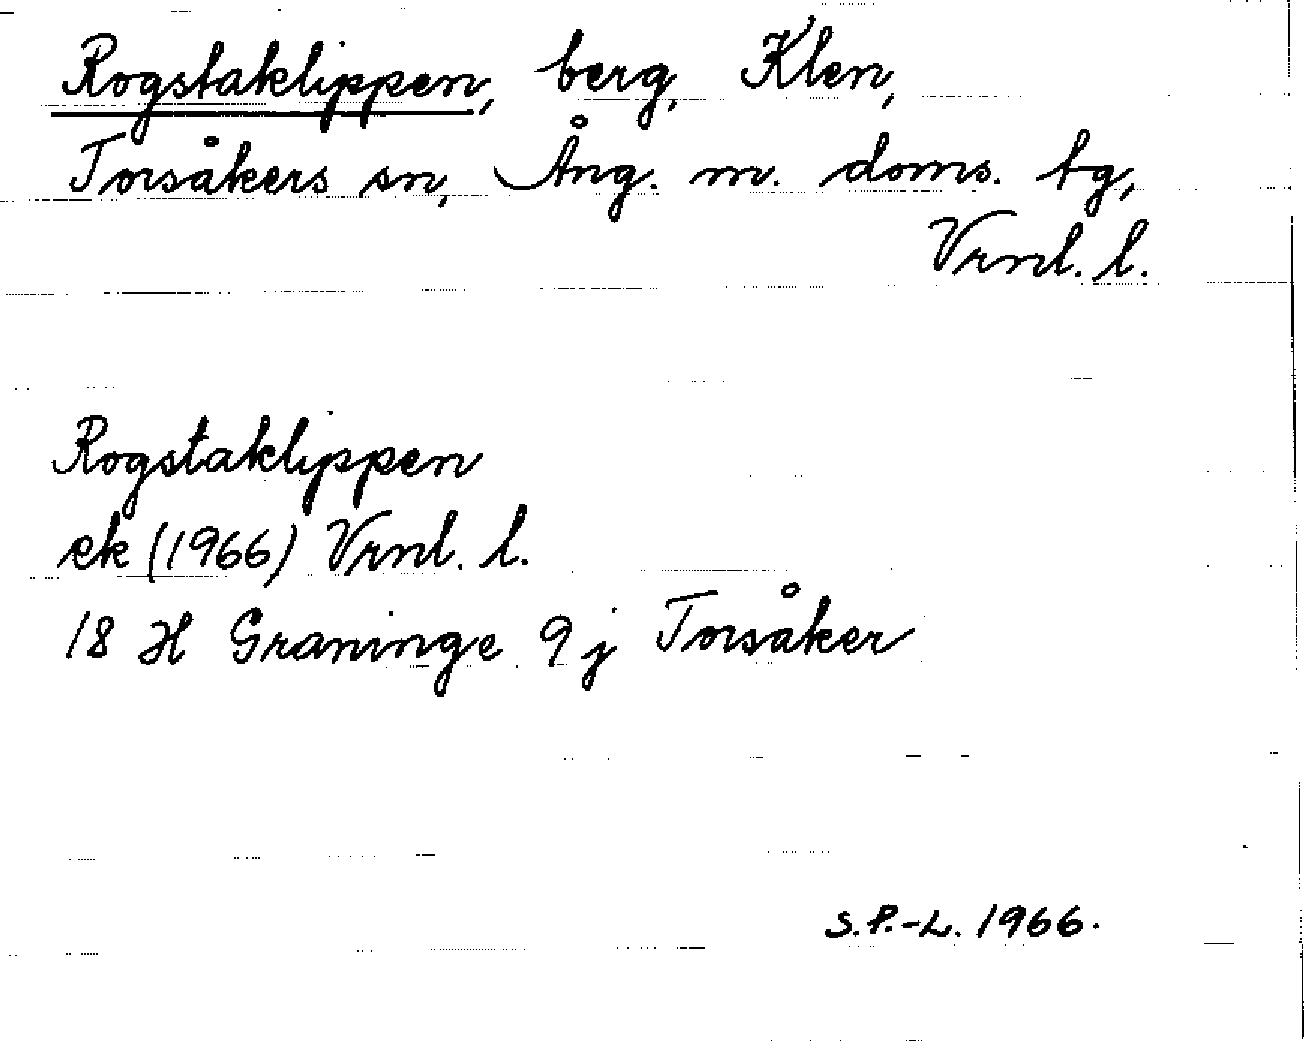 Rogstaklippen, berg, Klen,
Torsåkers sn, Ång. m. doms. tg,
Vrnl. l.
Rogstaklippen
ek (1966) Vrnl. l.
18 H Graninge 9 j Torsåker
S.P.-L. 1966.